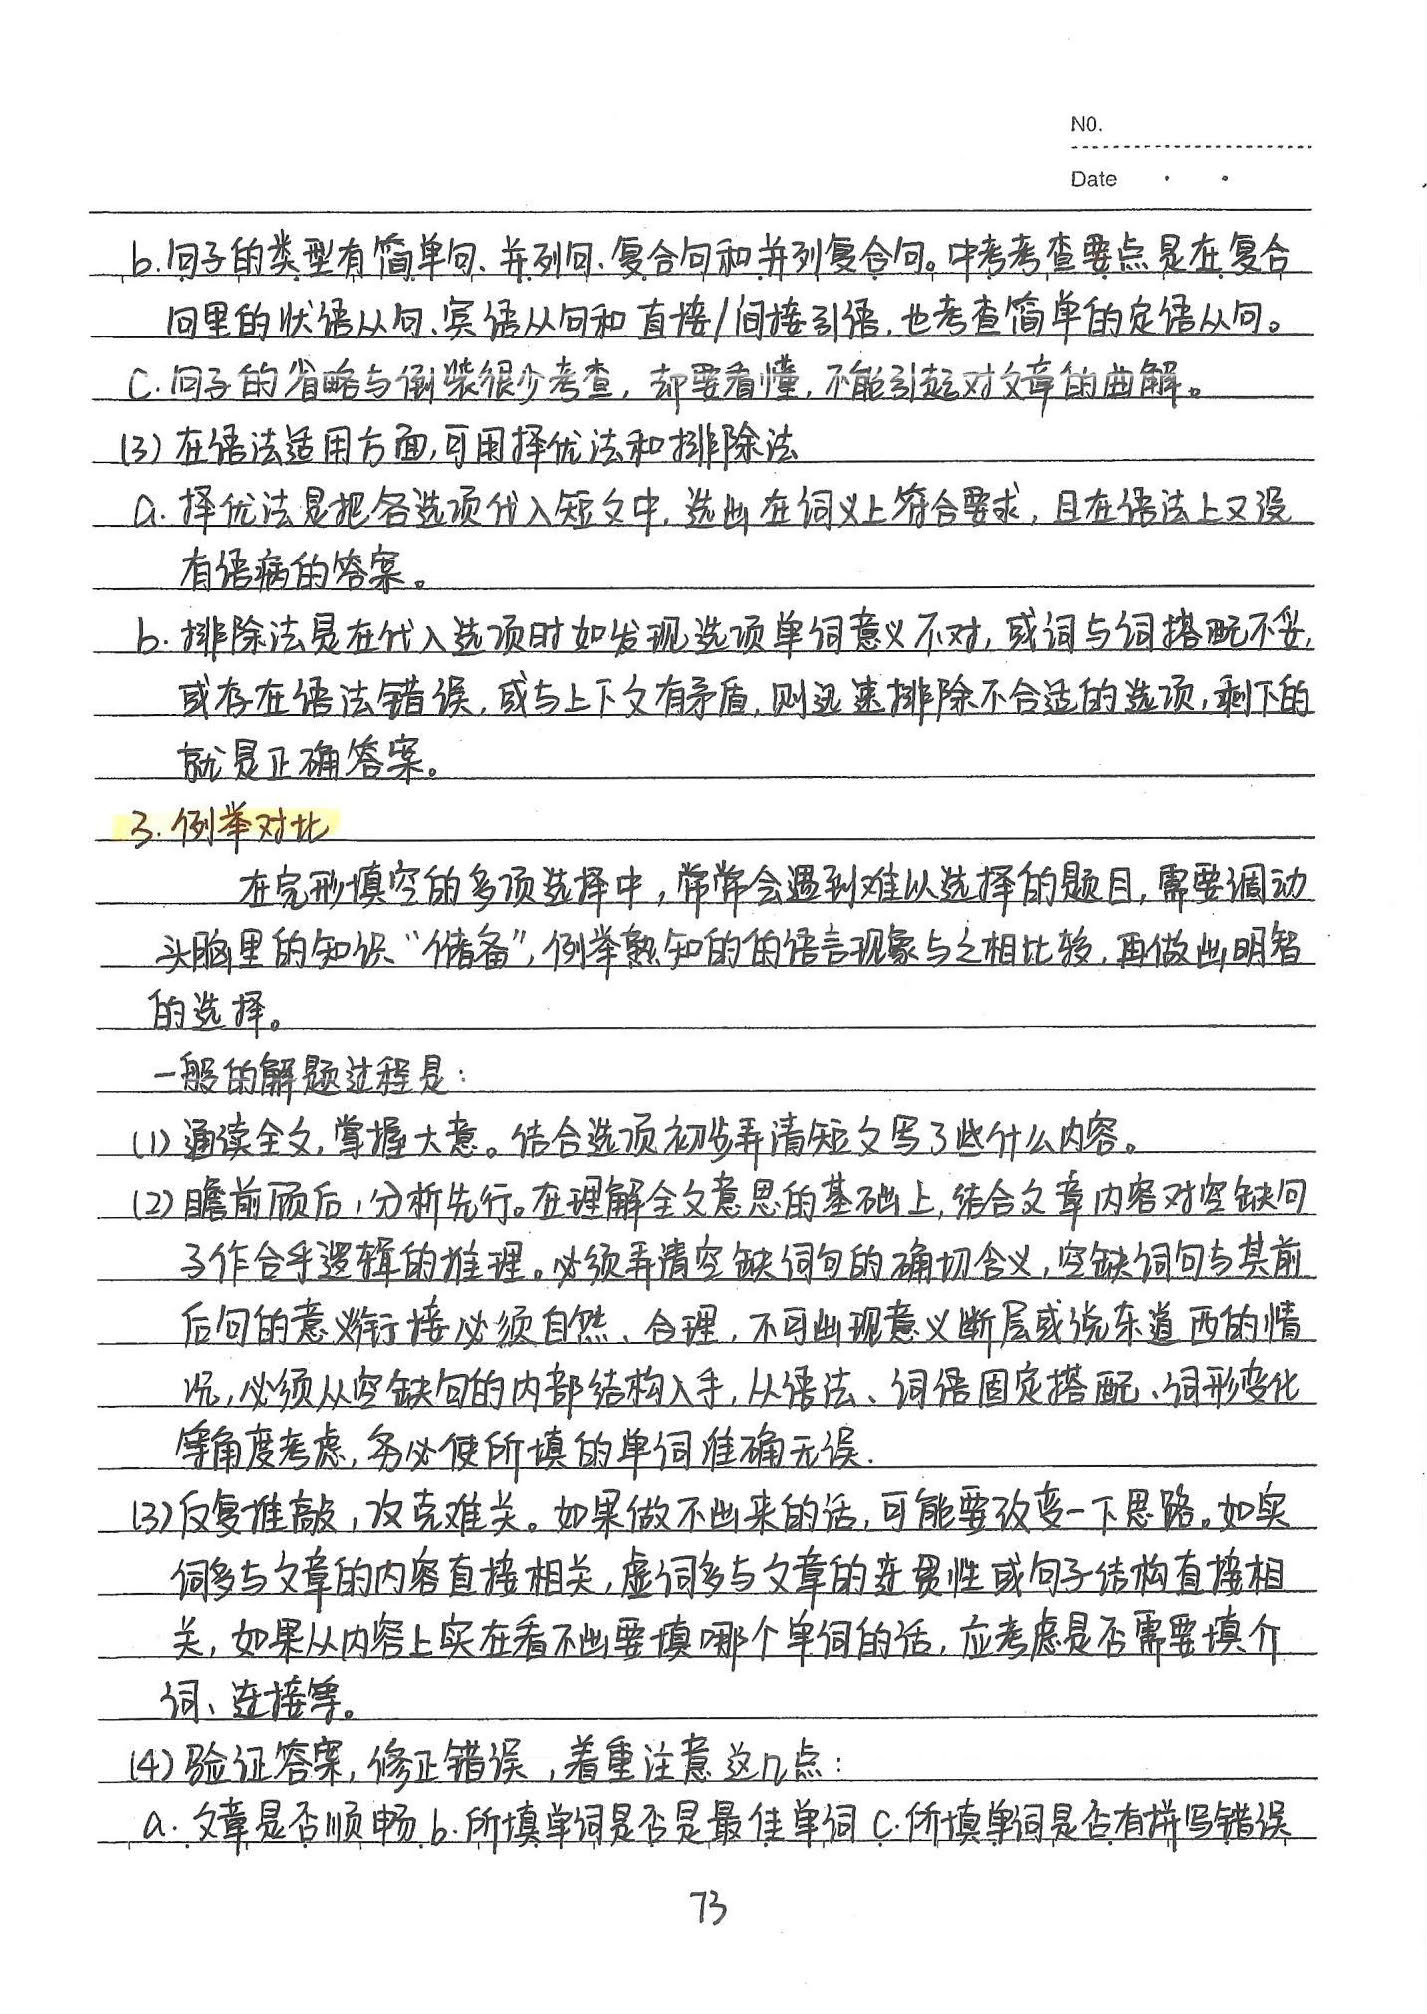 NO.
Date
b. 句子的类型有简单句、并列句、复合句和并列复合句。中考考查要点是在复合
句里的状语从句、宾语从句和直接/间接引语,也考查简单的定语从句。
C. 句子的省略与倒装很少考查,却要看懂,不能引起对文章的曲解。
(3) 在语法适用方面,可用择优法和排除法
a. 择优法是把各选项代入短文中,选出在词义上符合要求,且在语法上又没
有语病的答案。
b. 排除法是在代入选项时如发现选项单词意义不对,或词与词搭配不妥,
或存在语法错误,或与上下文有矛盾,则迅速排除不合适的选项,剩下的
就是正确答案。
3. 例举对比
在完形填空的多项选择中,常常会遇到难以选择的题目,需要调动
头脑里的知识“储备”,例举熟知的的语言现象与之相比较,再做出明智
的选择。
一般的解题过程是:
(1) 通读全文,掌握大意。结合选项初步弄清短文写了些什么内容。
(2) 瞻前顾后,分析先行。在理解全文意思的基础上,结合文章内容对空缺句
子作合乎逻辑的推理。必须弄清空缺词句的确切含义,空缺词句与其前
后句的意义衔接必须自然、合理,不可出现意义断层或说东道西的情
况,必须从空缺句的内部结构入手,从语法、词语固定搭配、词形变化
等角度考虑,务必使所填的单词准确无误.
(3) 反复推敲,攻克难关。如果做不出来的话,可能要改变一下思路。如实
词多与文章的内容直接相关,虚词多与文章的连贯性或句子结构直接相
关,如果从内容上实在看不出要填哪个单词的话,应考虑是否需要填介
词、连接等。
(4) 验证答案,修正错误,着重注意这几点:
a. 文章是否顺畅 b. 所填单词是否是最佳单词 C. 所填单词是否有拼写错误
73